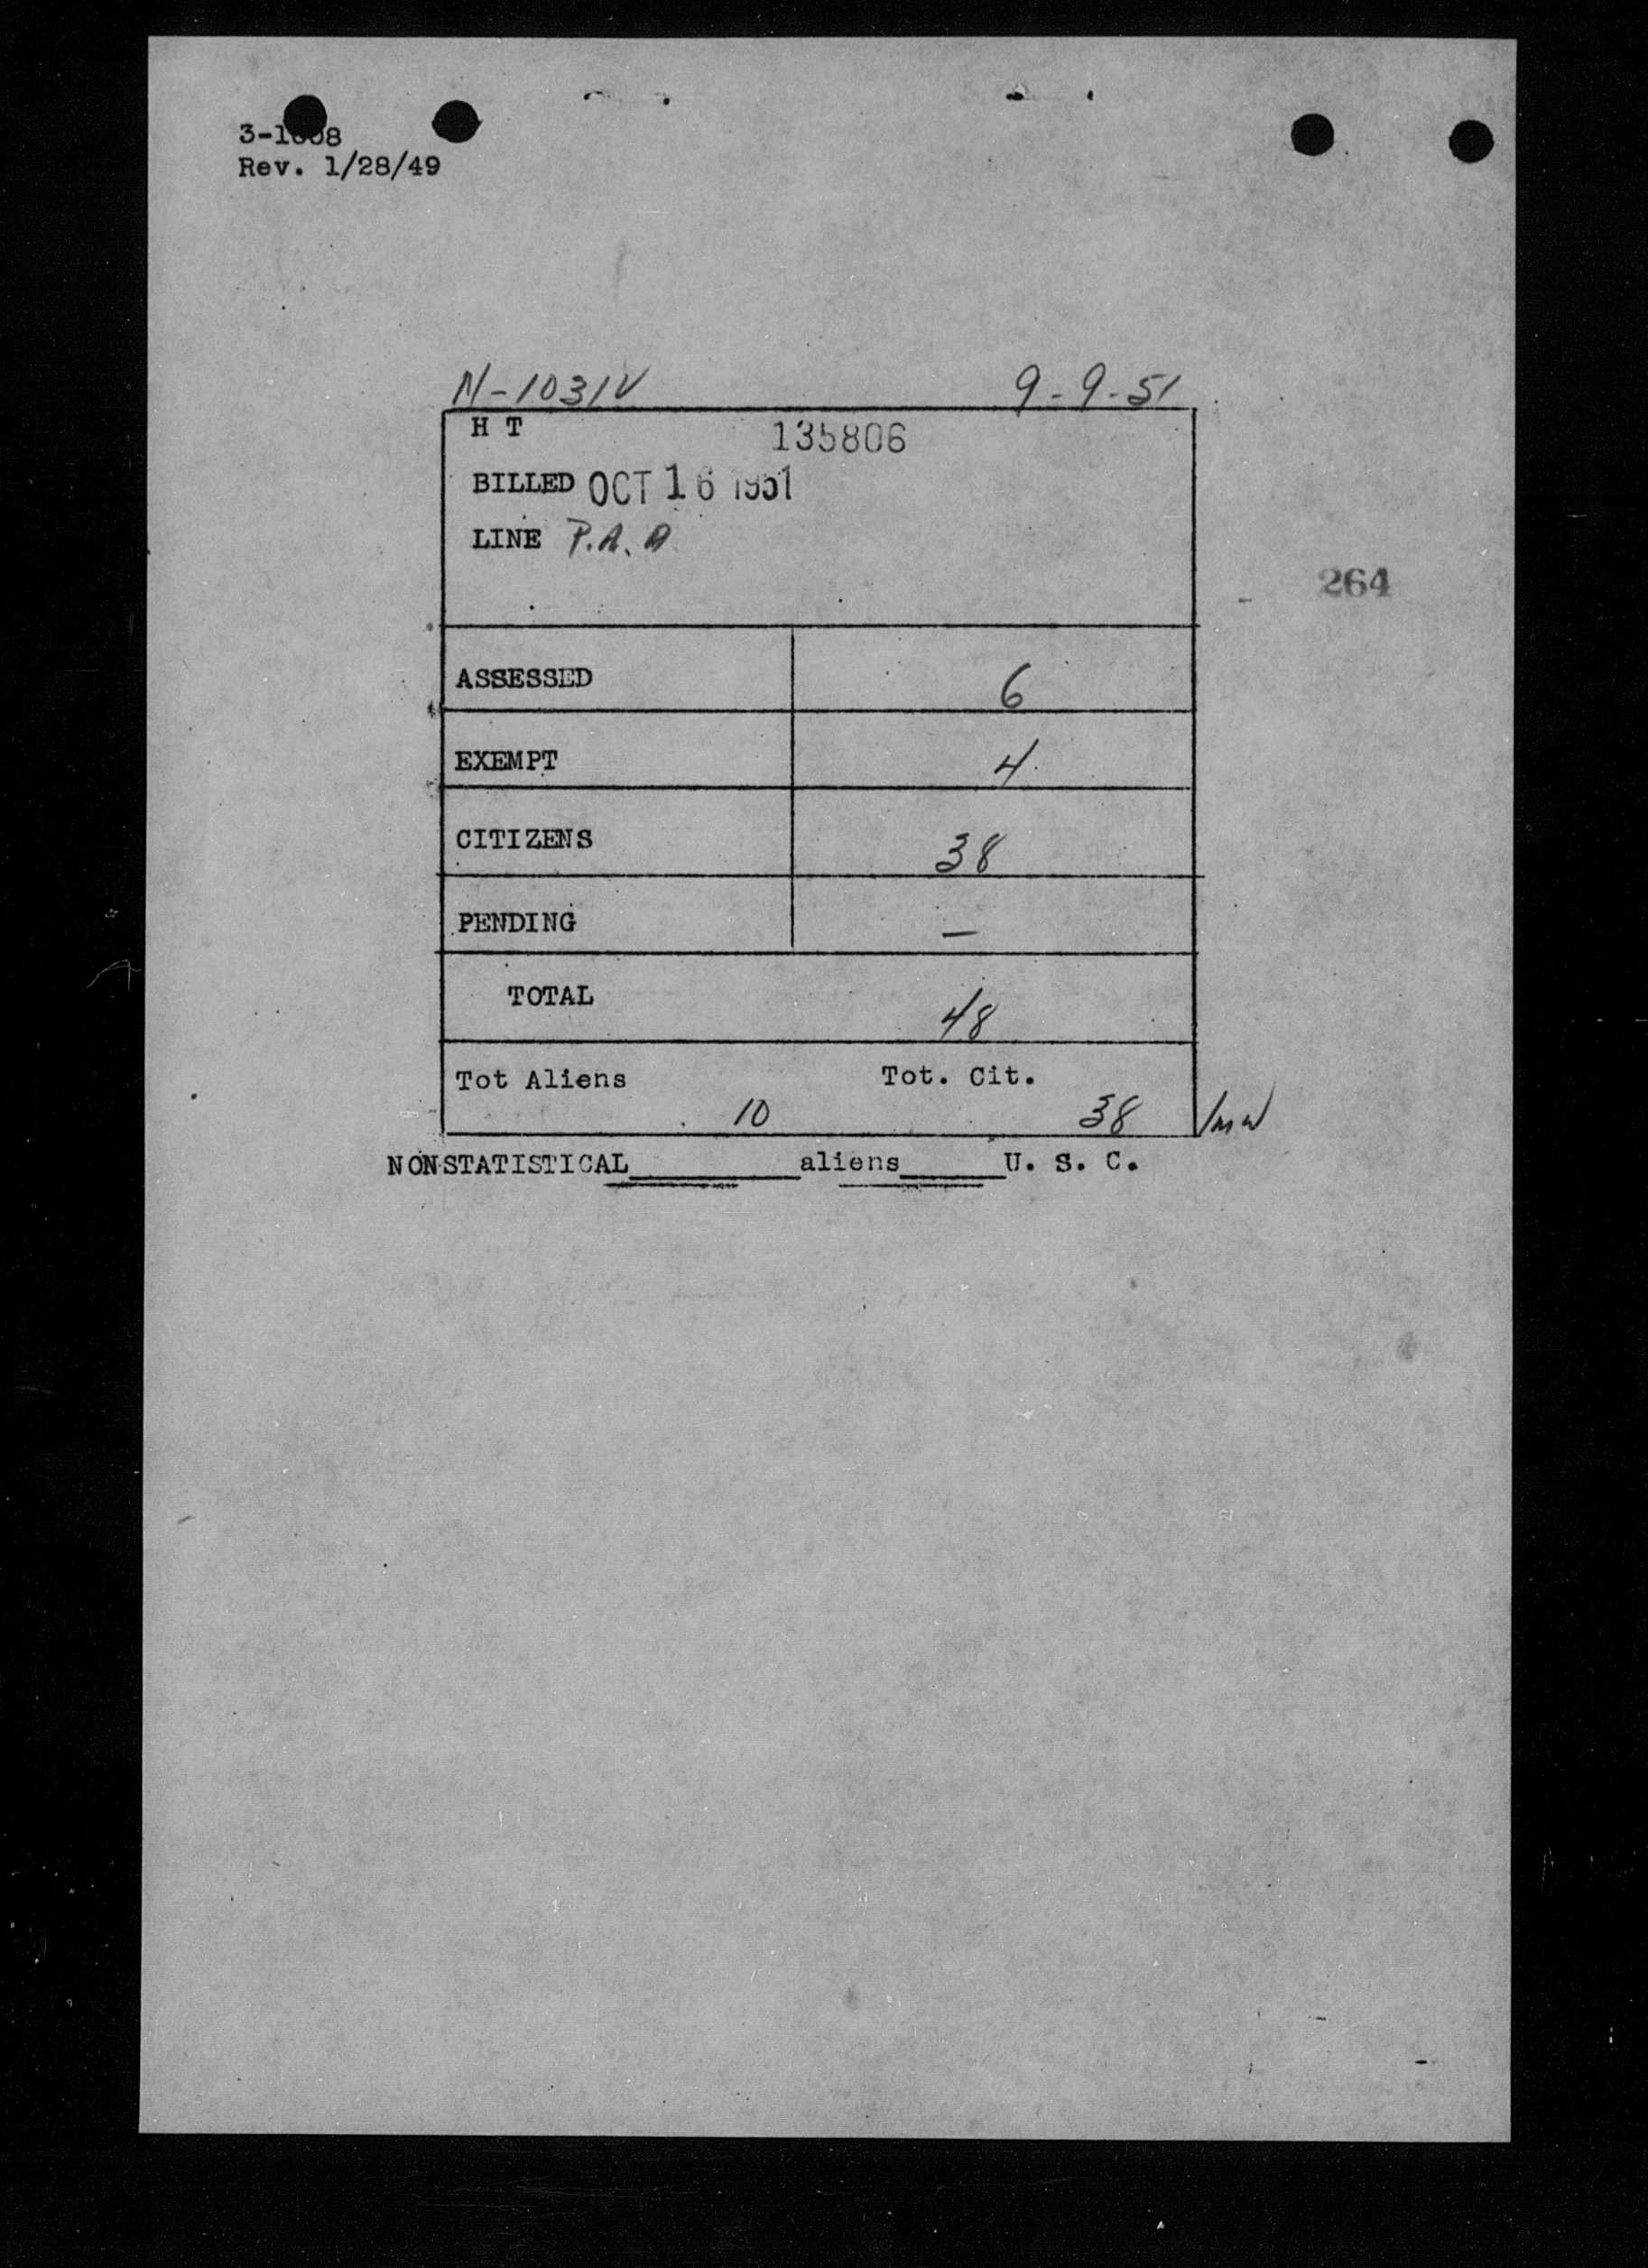 3-1008
Rev. 1/28/49
N-1031V 9-9-51
H T 135806
BILLED OCT 16 1951
LINE P.A.A
264
ASSESSED 6
EXEMPT 4
CITIZENS 38
PENDING —
TOTAL 48
Tot Aliens Tot. Cit.
10 38
NONSTATISTICAL________aliens_____U. S. C.